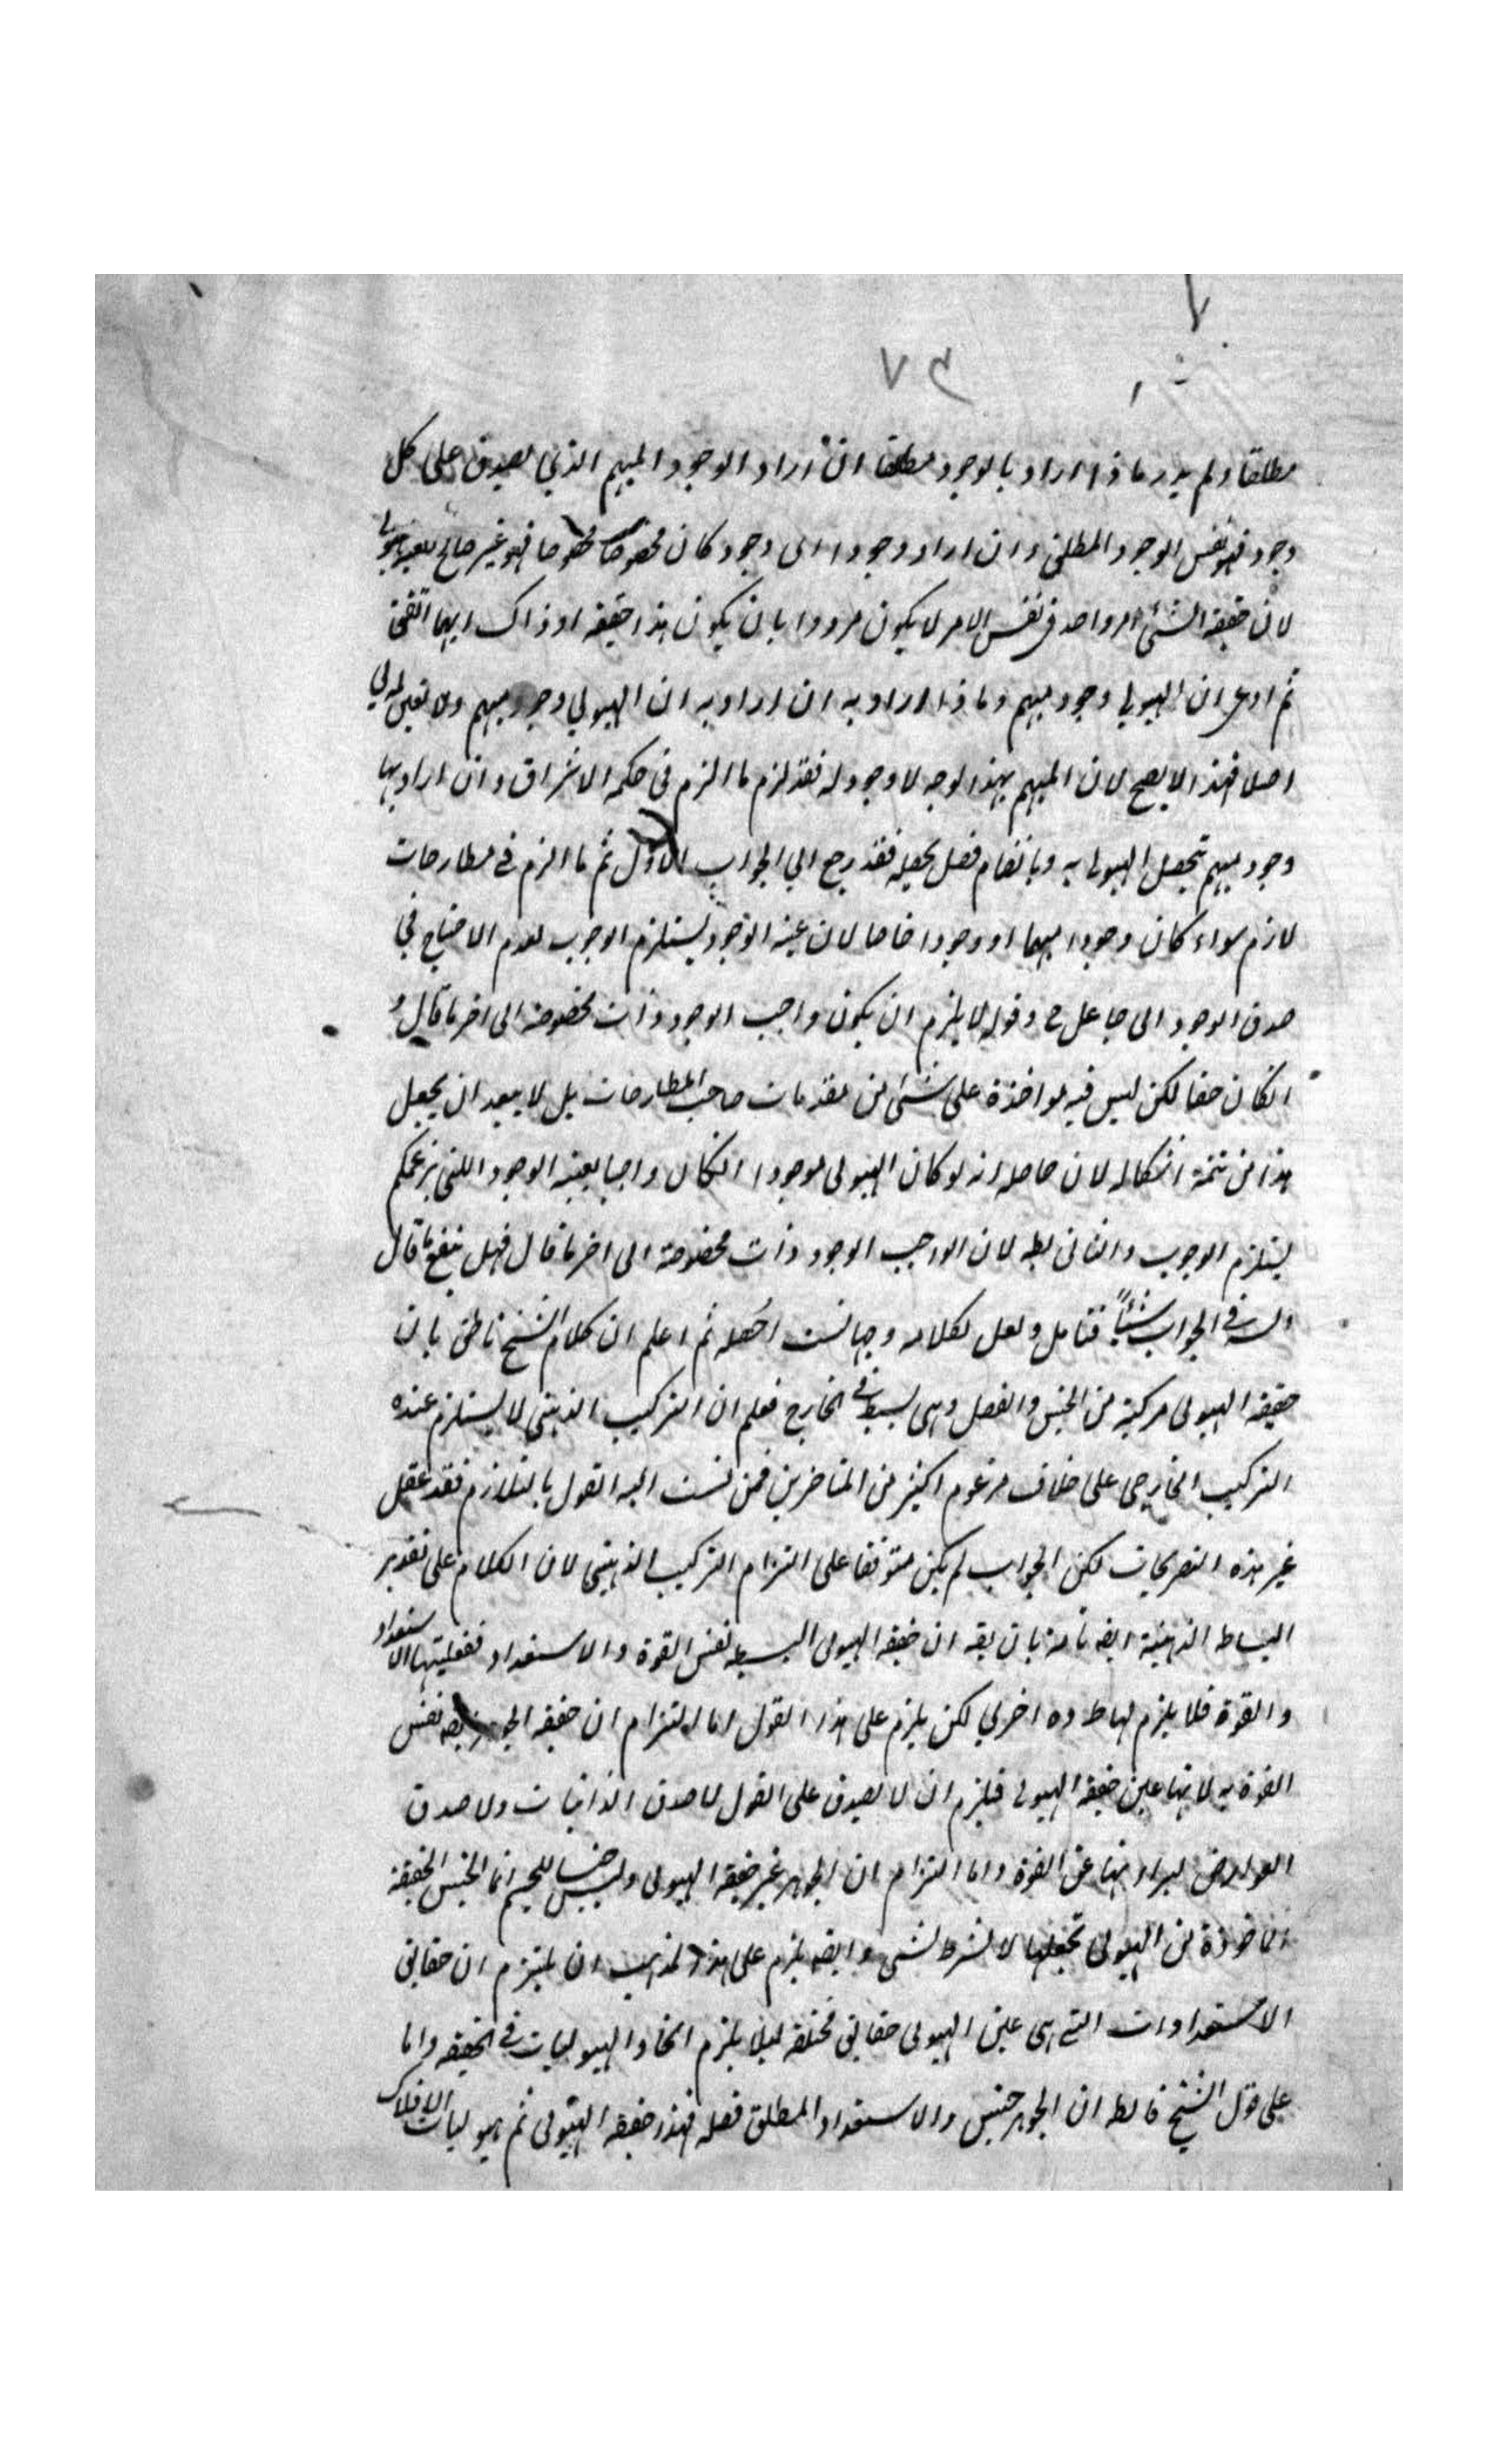 ٧٤
مطلقا ولم يدر ما ذا اراد بالوجود مطلقا ان اراد الوجود المبهم الذي يصدق على كل
وجود فهو نفس الوجود المطلق وان اراد وجودا اى وجود كان مخصوصا فهو غير صالح
لان حقيقة الشئ امر واحد فى نفس الامر لا يكون مرددا بان يكون هذا حقيقة او ذاك ايهما اتفق
ثم ادعى ان الهيولي وجود مبهم وما ذا اراد به ان اراد به ان الهيولي وجود مبهم ولا تعين له
اصلا فهذا لا يصح لان المبهم بهذا الوجه لا وجود له فقد لزم ما الزم فى حكمة الاشراق وان اراد بها
وجود مبهم تحصل الهيولى به وبانضمام فصل يحصله فقد رجع الي الجواب الاول ثم ما الزم في مطارحات
لازم سواء كان وجودا مبهما او وجودا خاصا لان عينية الوجود يستلزم الوجوب لعدم الاحتياج في
صدق الوجود الى جاعل ح وقوله لا يلزم ان يكون واجب الوجود ذات مخصوصة الى اخر ما قال
انكان حقا لكن ليس فيه مواخذة على شئ من مقدمات صاحب المطارحات بل لا يبعد ان يجعل
هذا من تتمة اشكاله لان حاصله انه لو كان الهيولى موجودا لكان واجبا بعينه الوجود اللتى بزعمكم
يستلزم الوجوب والثانى بطه لان الواجب الوجود ذات مخصوصة الى اخر ما قال فهل ينفع ما قال
فى الجواب شيئاً فتامل ولعل لكلامه وجها لست احصله ثم اعلم ان كلام الشيخ ناطق بان
حقيقة الهيولى مركبة من الجنس والفصل وهى بسيط فى الخارج فعلم ان التركيب الذهنى لا يستلزم عنده
التركيب الخارجى على خلاف مزعوم اكثر من المتاخرين فمن نسب اليه القول بالتلازم فقد غفل
غير هذه التصريحات لكن الجواب لم يكن متوقفا على التزام التركيب الذهنى لان الكلام على تقدير
البساطه الذهنية ايضا تامة بان يقه ان حقيقة الهيولى البسيطه نفس القوة والاستعداد ففعليتها الاستعداد
والقوة فلا يلزم لها ماده اخري لكن يلزم على هذا القول اما التزام ان حقيقة نفس
القوة به لانها عين حقيقة الهيولى فيلزم ان لا يصدق على القول لا صدق الذاتيات ولا صدق
العوارض عن القوة واما التزام ان الجوهر غير حقيقة الهيولى وليس جنسا للجسم انما الجنس الحقيقة
الماخوذة من الهيولى تجعلها لا بشرط لشى وايضه يلزم على هذا المذهب ان يلتزم ان حقايق
الاستعدادات التى هى عين الهيولى حقايق مختلفة ليلا يلزم اتحاد الهيوليات في الحقيقه واما
على قول الشيخ ان الجوهر جنس والاستعداد المطلق فصله فهذا حقيقة الهيولى ثم هيوليات الافلاك